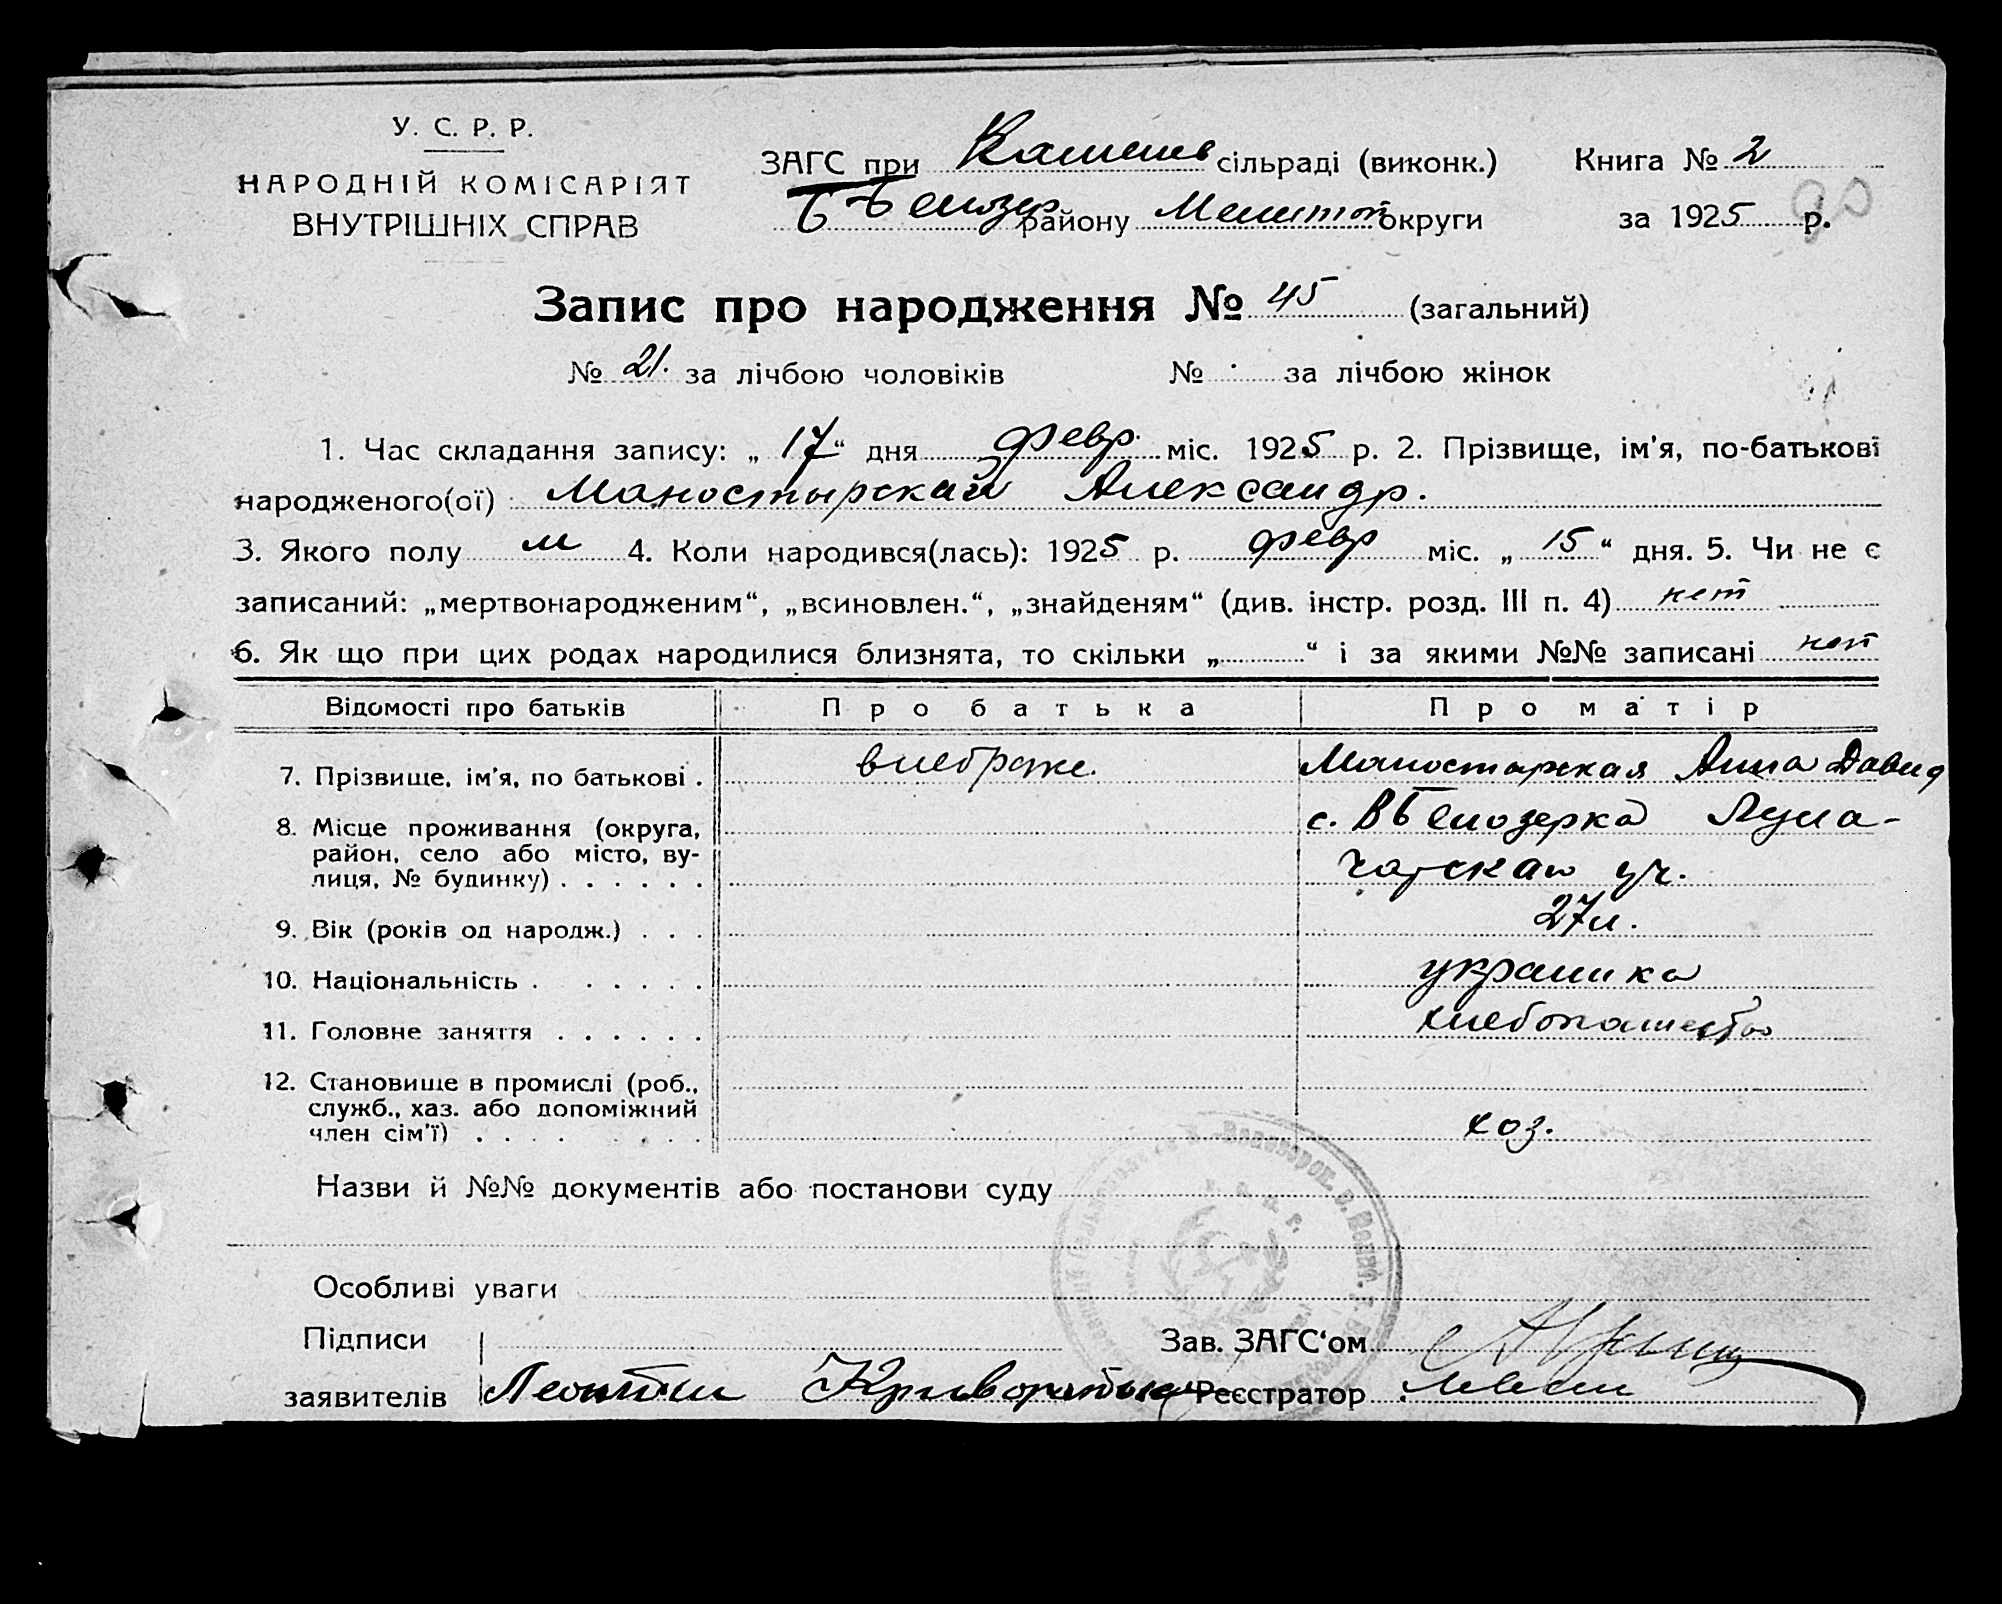 У. С. Р. Р.
НАРОДНІЙ КОМІСАРІЯТ
ВНУТРІШНІХ СПРАВ
ЗАГС при Камышев сільраді (виконк.)
Б-Белозер району Мелитоп округи
Книга № 2
за 1925 р.
90
Запис про народження № 45 (загальний)
№ 21. за лічбою чоловіків № за лічбою жінок
1. Час складання запису: „ 17 “ дня февр. міс. 1925 р. 2. Прізвище, ім'я, по-батькові
народженого(ої) Маностырский Александр.
3. Якого полу м 4. Коли народився(лась): 1925 р. февр міс. „ 15 “ дня. 5. Чи не є
записаний: „мертвонародженим“, „всиновлен.“, „знайденям“ (див. інстр. розд. III п. 4) нет
6. Як що при цих родах народилися близнята, то скільки „ “ і за якими №№ записані нет
Відомості про батьків Про батька Про матір
7. Прізвище, ім'я, по батькові . внебраке. Маностырская Анна Давид
8. Місце проживання (округа, с. ВБелозерка Луна-
район, село або місто, ву-
лиця, № будинку) . . . . . . чарская уч.
9. Вік (років од народж.) . . . 27 л.
10. Національність . . . . . . украинка
11. Головне заняття . . . . . . хлебопашество
12. Становище в промислі (роб.,
служб., хаз. або допоміжний
член сім'ї) . . . . . . . хоз.
Назви й №№ документів або постанови суду
Особливі уваги
Підписи Зав. ЗАГС'ом
заявителів Реєстратор